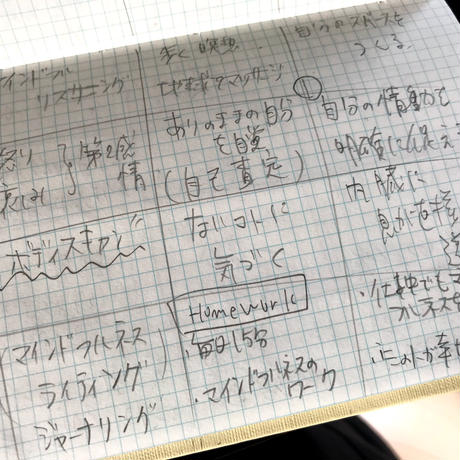 マインドフル
リスニング
怒り
悲しみ
第2感
情
ボディスキャン
マインドフルネス
ライティング
ジャーナリング
歩く瞑想
ありのままの自分
を自覚
(自己肯定)
ないコトに
気づく
Homework
・毎日15分
・マインドフルネスの
ワーク
自分のスペースを
つくる
自分の情動を
明確に
内臓に
・仕事中でもマ